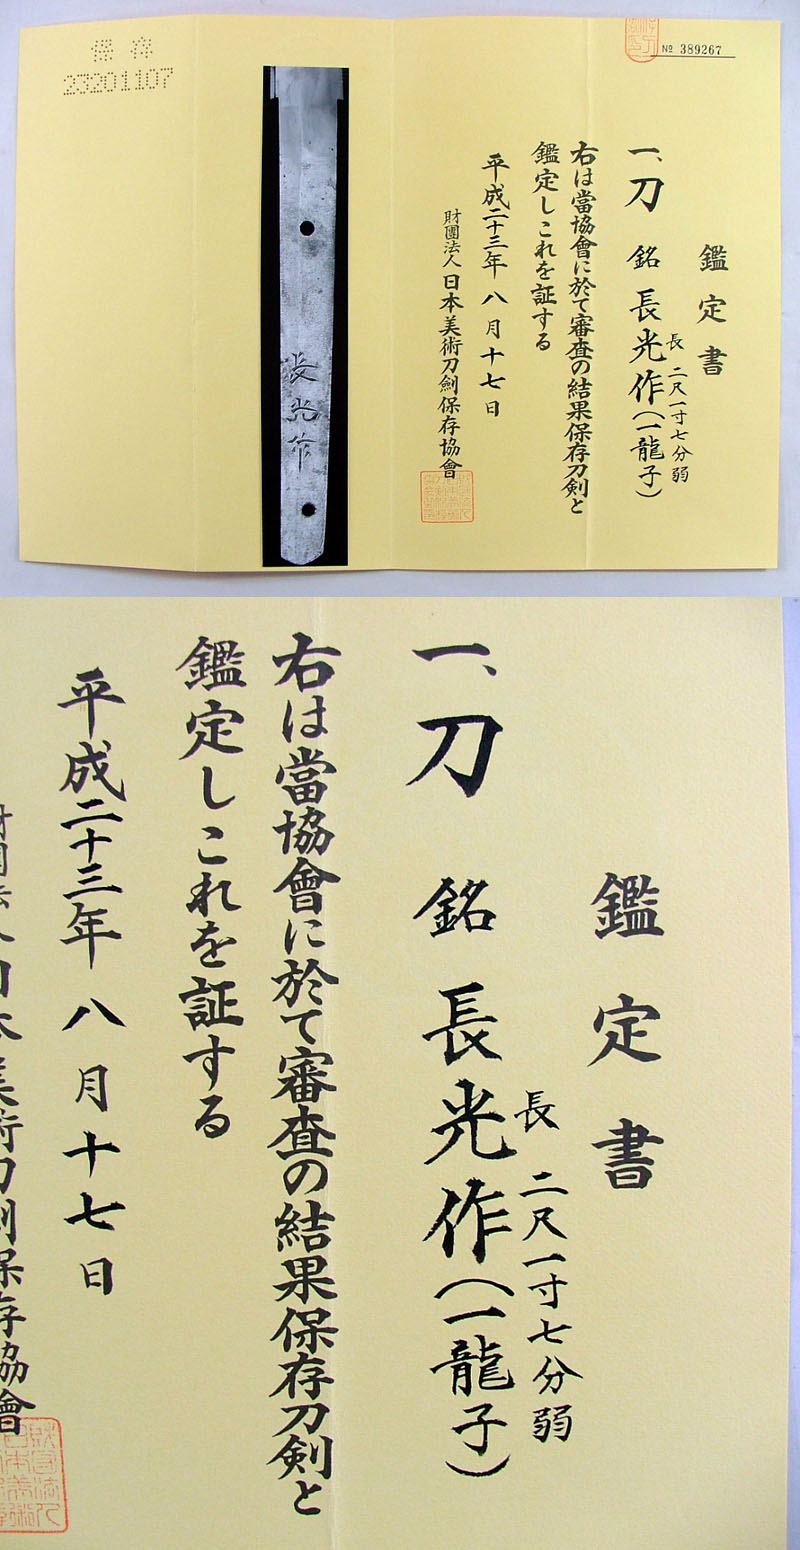 保存
23201107
№ 389267
鑑定書
長 二尺一寸七分弱
一、刀 銘 長光作(一龍子)
右は當協會に於て審査の結果保存刀剣と
鑑定しこれを証する
平成二十三年八月十七日
財團法人日本美術刀劍保存協會
長光作
鑑定書
長 二尺一寸七分弱
一、刀 銘 長光作(一龍子)
右は當協會に於て審査の結果保存刀剣と
鑑定しこれを証する
平成二十三年八月十七日
財團法人日本美術刀劍保存協會